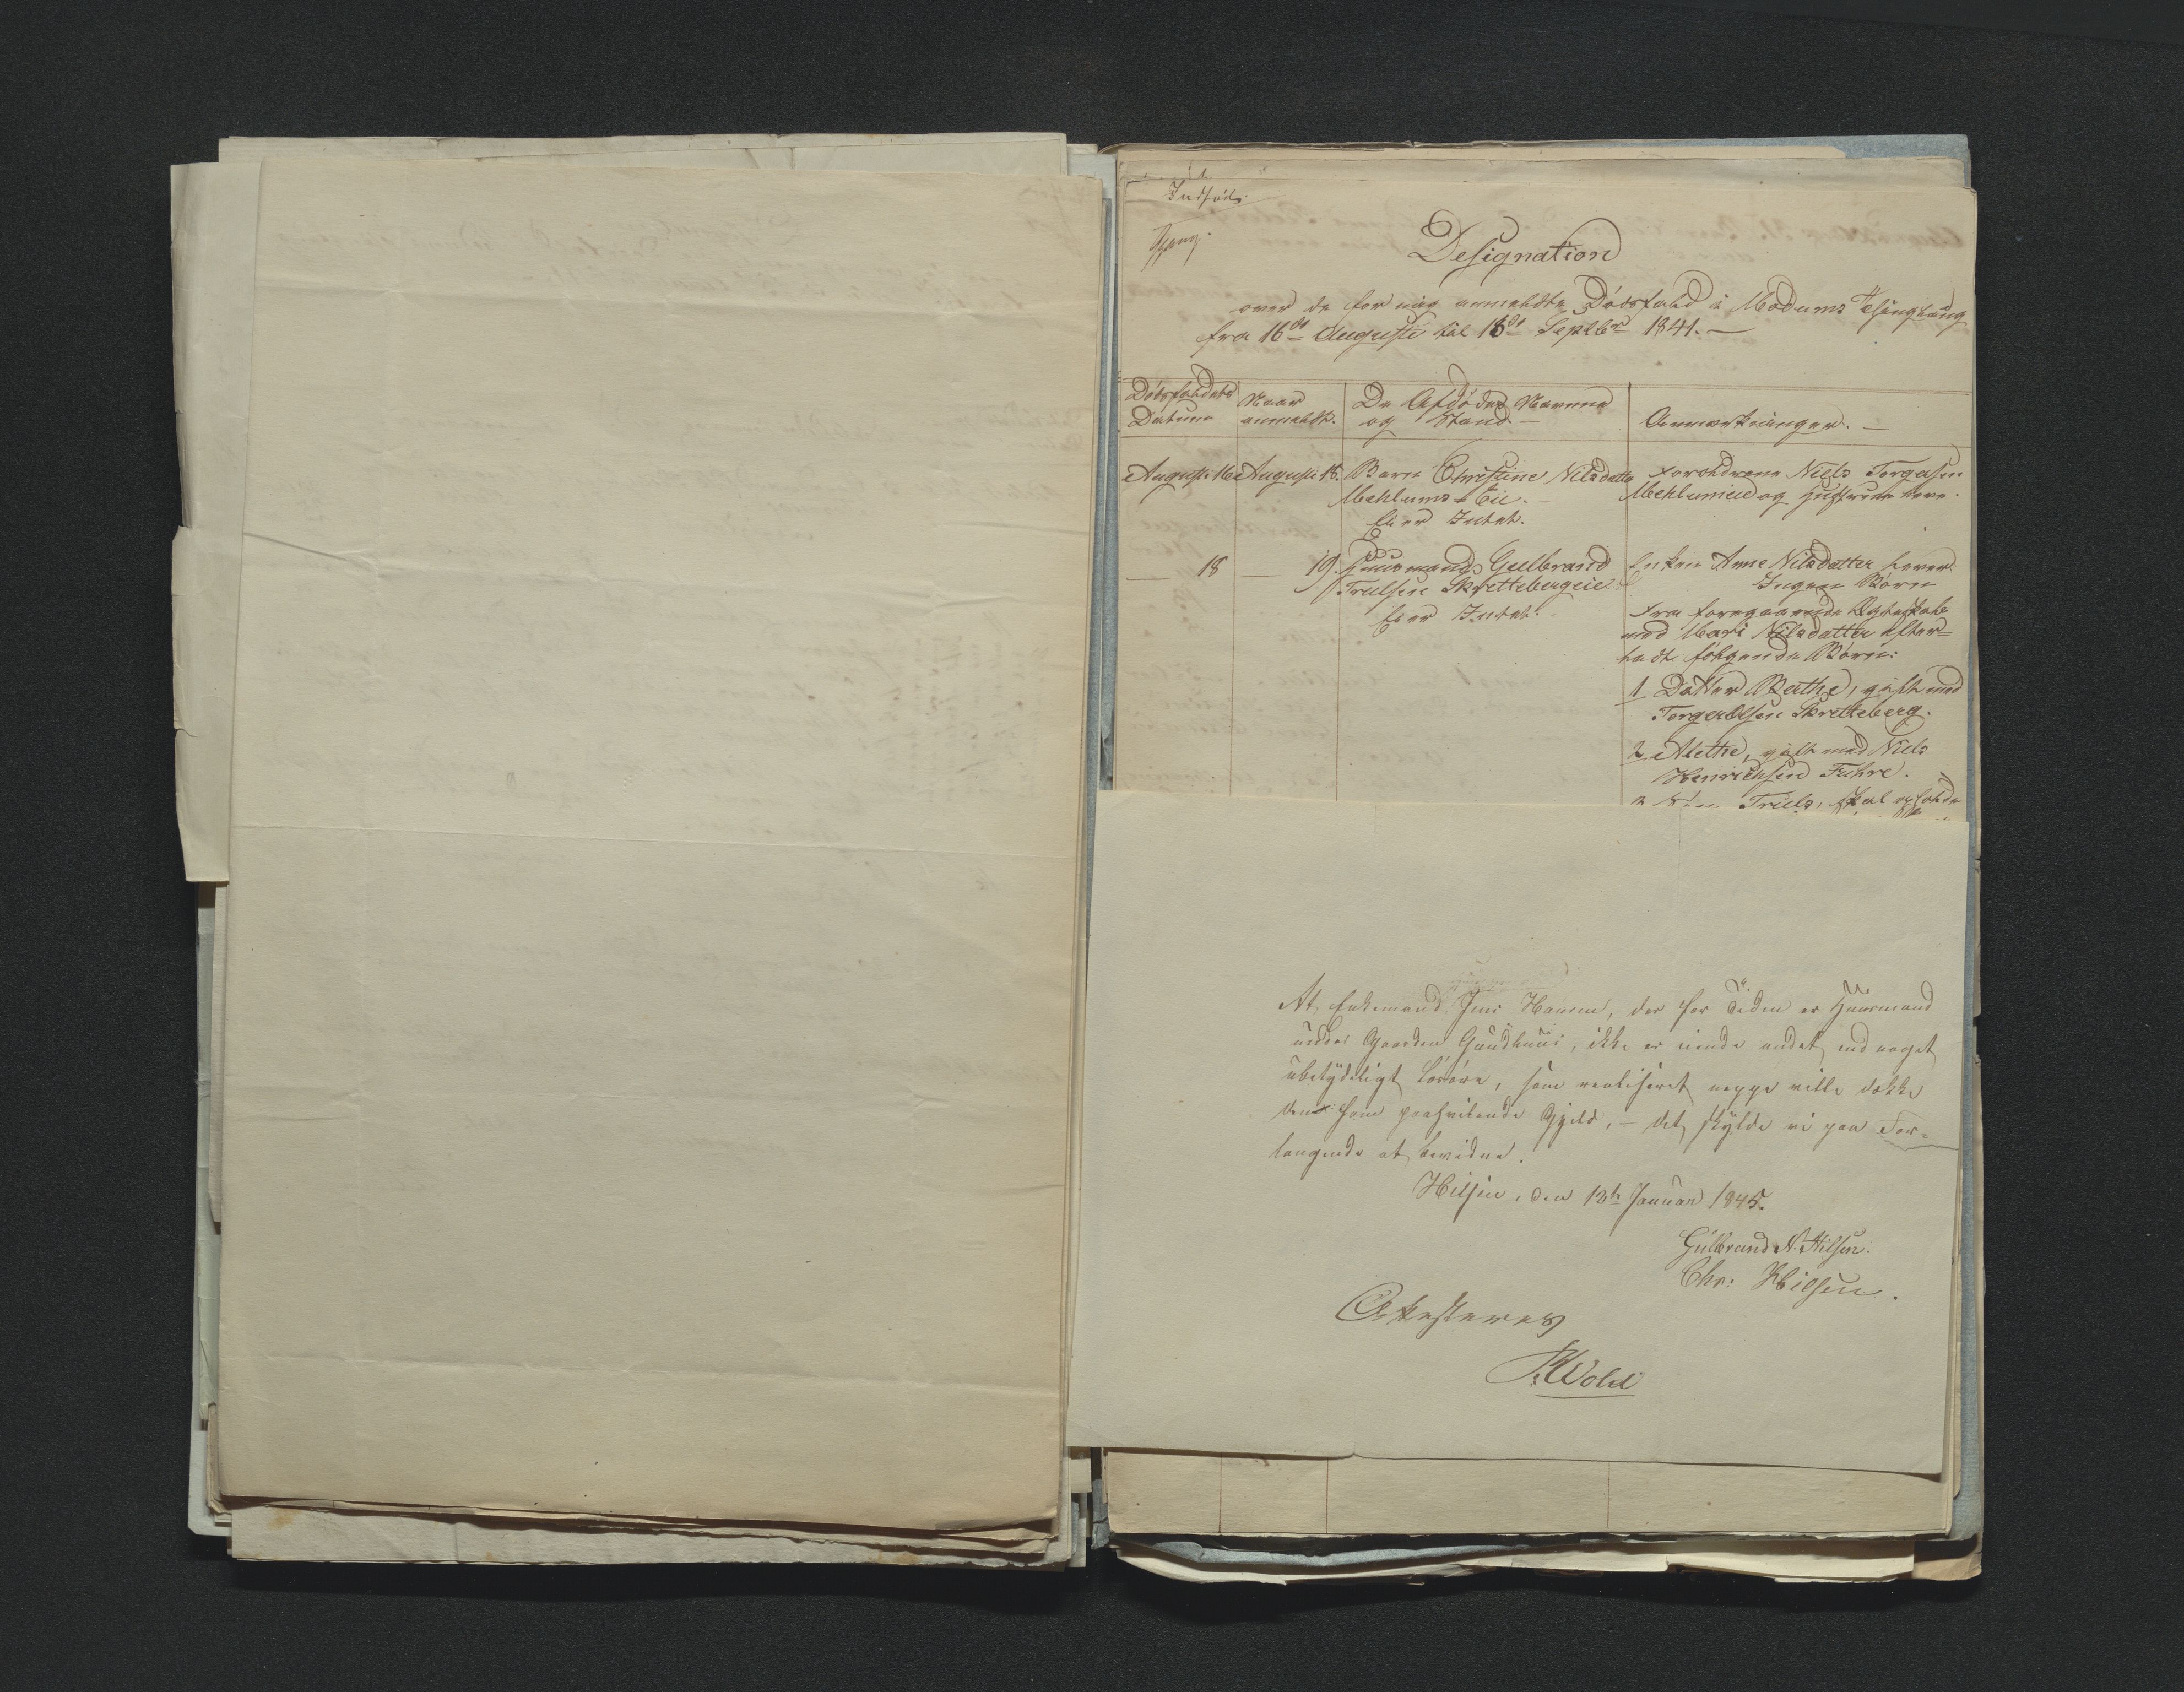 Indført
Designation
over de for mig anmeldte Dødsfald i Modums Thinglaug
fra 16de August til 18de Septbr 1841. —
Dødsfaldets
Datum
Naar
anmeldt.
De Afdødes Navne
og Stand. —
Anmærkninger. —
August 16
August 18.
Barn Christine Nilsdatter
Mehlums Eie. —
Eier Intet.
Forældrene Niels Torgersen
Mehlumeie og Hustrue leve.
— 18
— 19.
Huusmand Gulbrand
Trulsen Skrettebergeie
Eier Intet.
Enken Anne Nilsdatter lever
Ingen Børn
Fra foregaaende Ægteskab
med Mari Nilsdatter efter-
ladt følgende Børn:
1. Datter Berthe, gift med
Torger Olsen Skretteberg.
2. Alethe, gift med Niels
Henriksen Fuhre.
3. Søn Truls, skal opholde
At Enkemand Jens Hansen, der for Tiden er Huusmand
under Gaarden Gundhuus, ikke er eiende andet end noget
ubetydeligt Løsøre, som realiseret neppe ville dække
den ham paahvilende Gjeld, — det skylde vi paa For-
langende at bevidne.
Hilsen, den 13de Januar 1845.
Gulbrand N. Hilsen.
Chr: Hilsen.
Attesteres
Wold